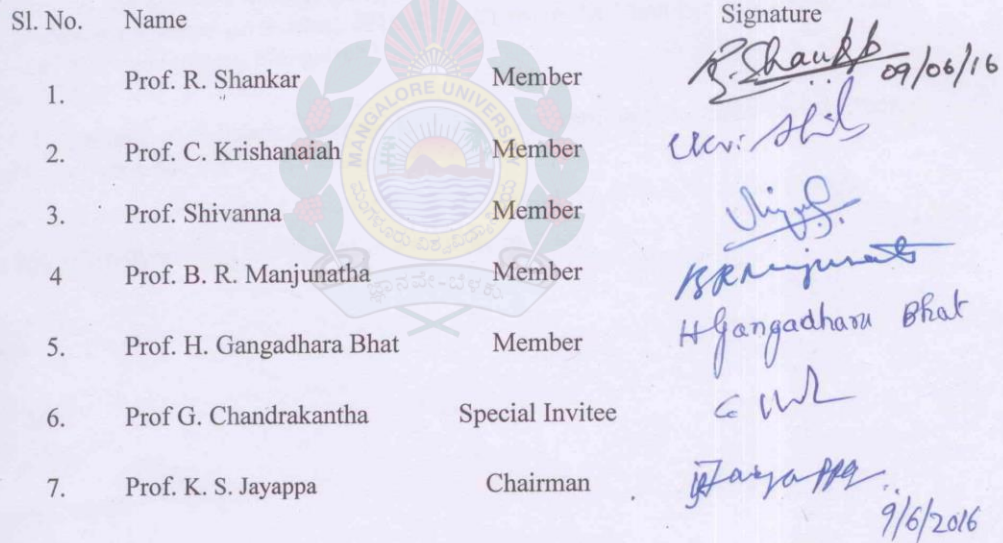 Sl. No. Name Signature
1. Prof. R. Shankar Member R. Shankar 09/06/16
2. Prof. C. Krishanaiah Member
3. Prof. Shivanna Member
4 Prof. B. R. Manjunatha Member BRManjunath
5. Prof. H. Gangadhara Bhat Member H Gangadhara Bhat
6. Prof G. Chandrakantha Special Invitee
7. Prof. K. S. Jayappa Chairman Jayappa
9/6/2016
MANGALORE UNIVERSITY
ಮಂಗಳೂರು ವಿಶ್ವವಿದ್ಯಾನಿಲಯ
ಜ್ಞಾನವೇ-ಬೆಳಕು